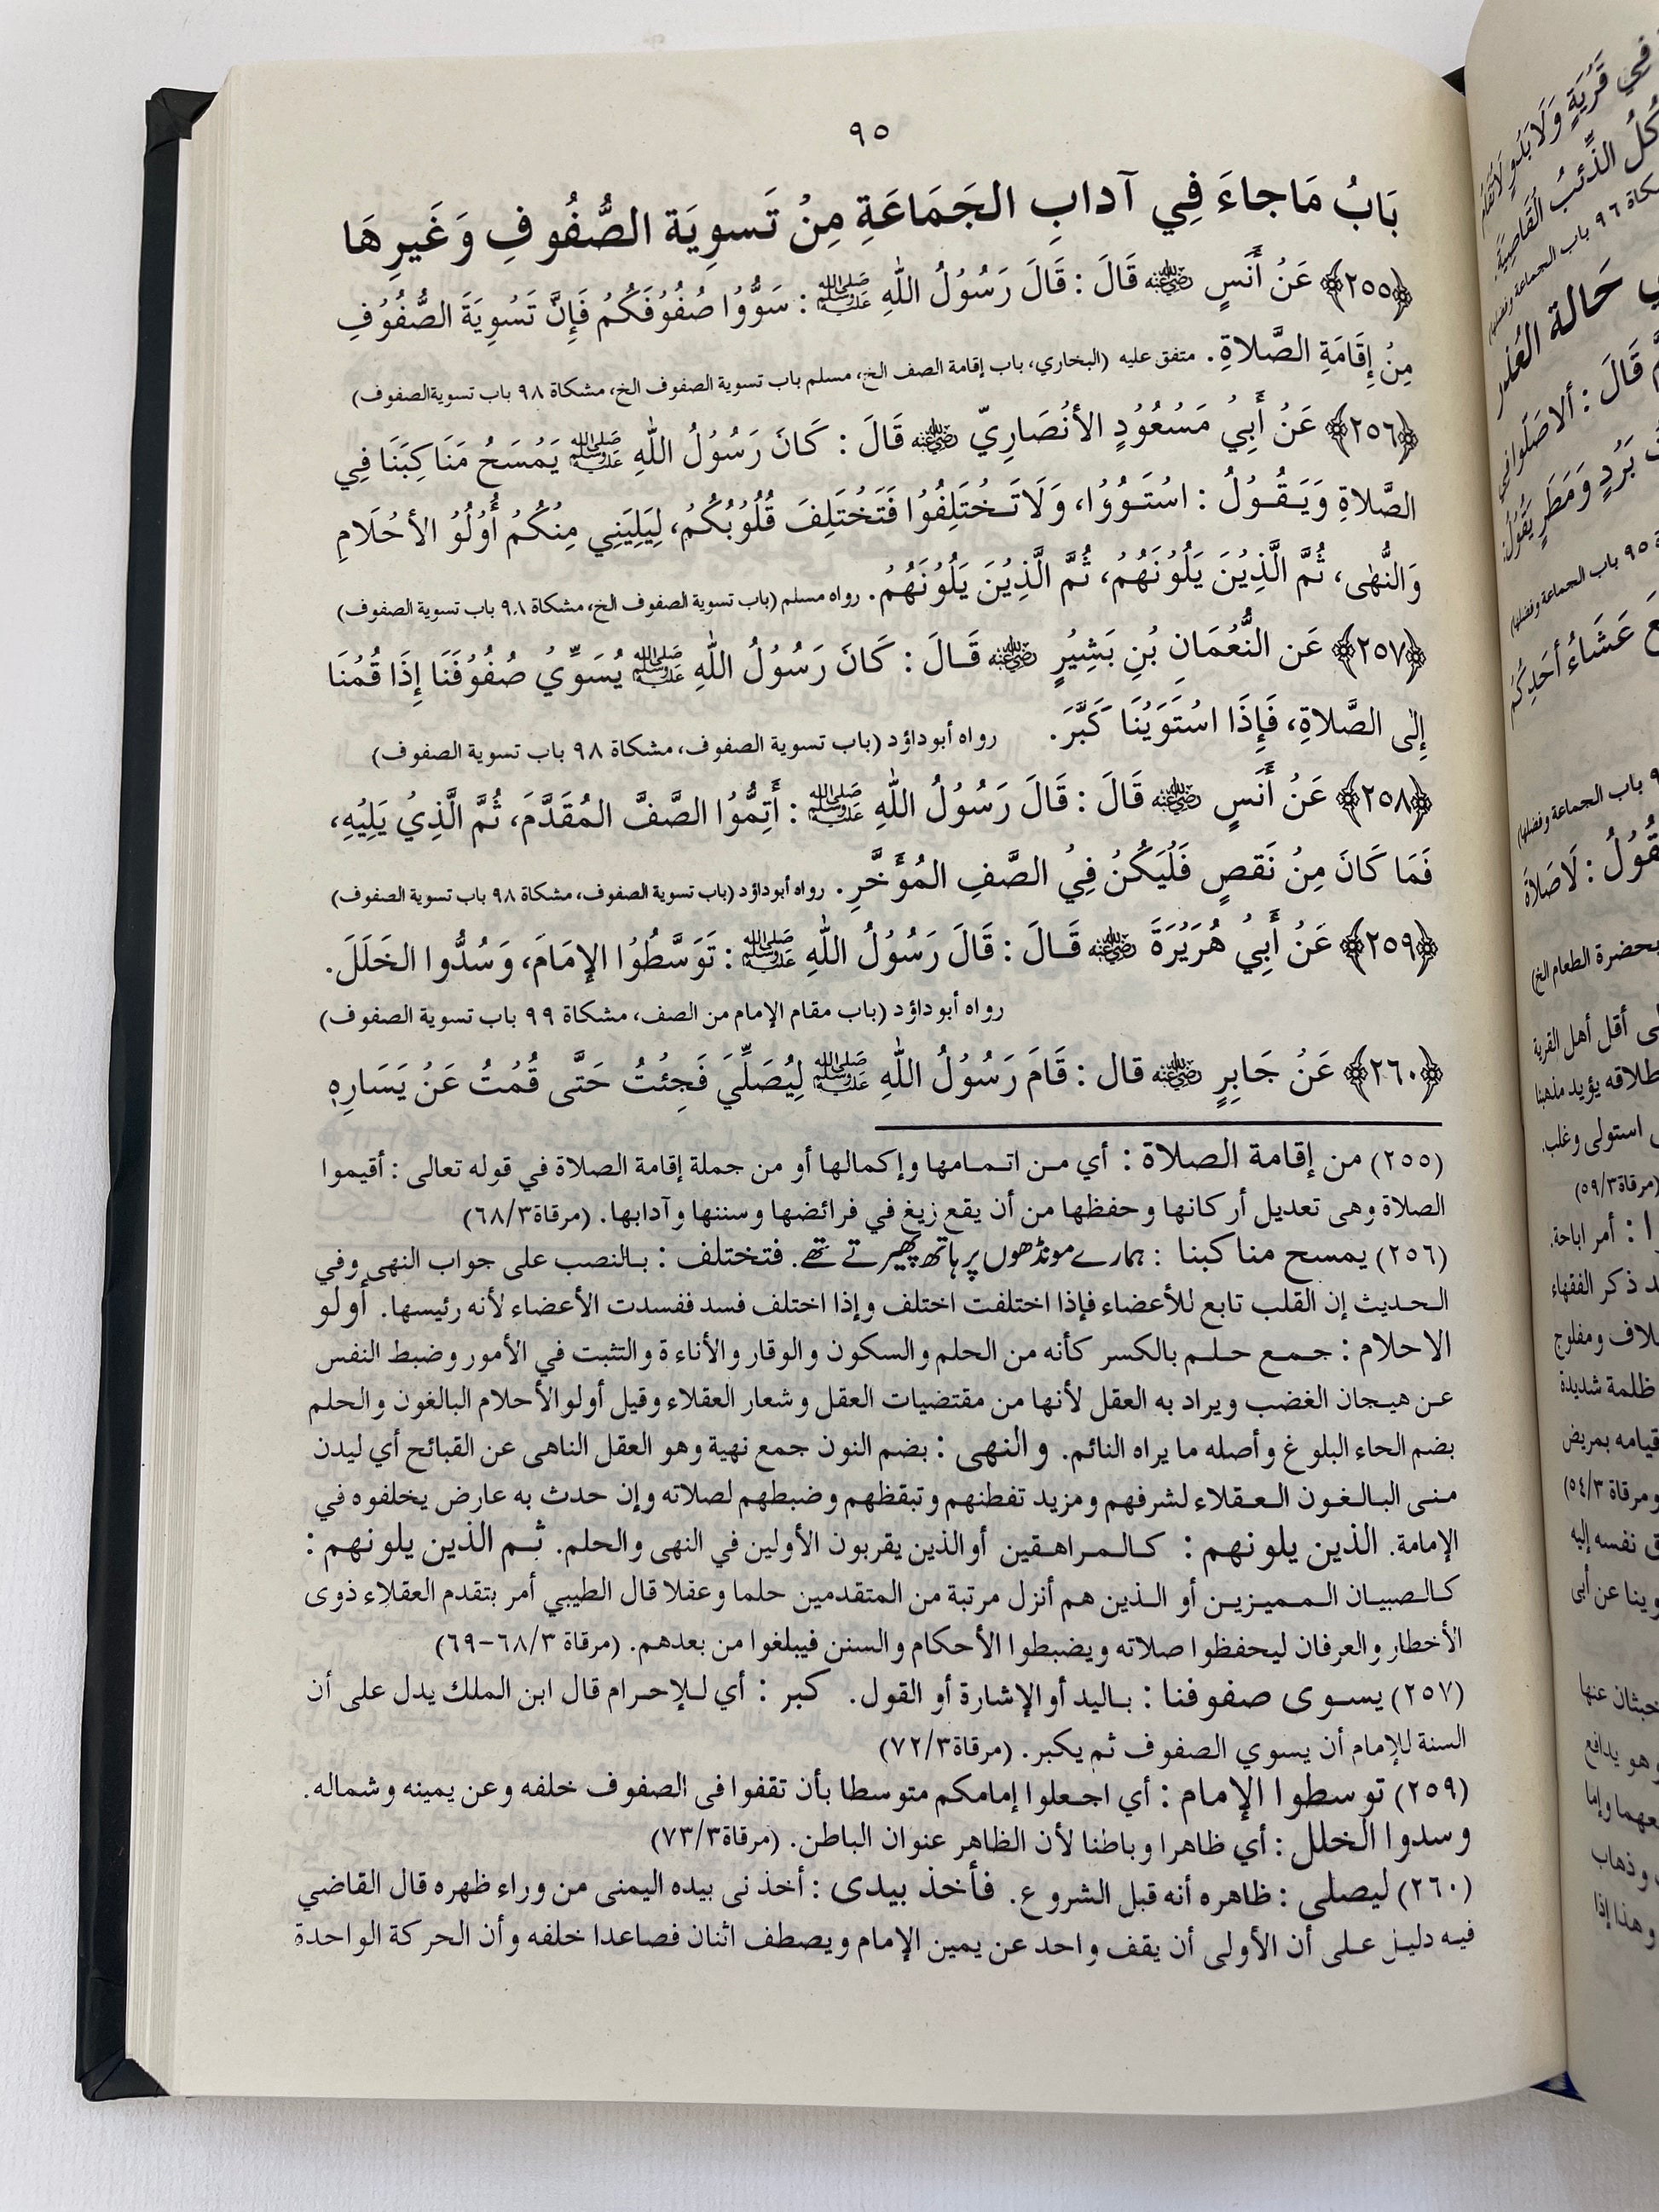 ٩٥
بَابُ مَاجاءَ فِي آدابِ الجَمَاعَةِ مِنْ تَسوِيَة الصُّفُوفِ وَغَيرِهَا
﴿٢٥٥﴾ عَنْ أَنَسٍ رضي الله عنه قَالَ : قَالَ رَسُوْلُ اللّٰهِ ﷺ : سَوُّوْا صُفُوْفَكُمْ فَإِنَّ تَسْوِيَةَ الصُّفُوْفِ
مِنْ إِقَامَةِ الصَّلاةِ. متفق عليه (البخاري، باب إقامة الصف الخ، مسلم باب تسوية الصفوف الخ، مشكاة ٩٨ باب تسويةالصفوف)
﴿٢٥٦﴾ عَنْ أَبِيْ مَسْعُوْدٍ الأنْصَارِيّ رضي الله عنه قَالَ : كَانَ رَسُوْلُ اللّٰهِ ﷺ يَمْسَحُ مَنَاكِبَنَا فِي
الصَّلاةِ وَيَقُوْلُ : اسْتَوُوْا، وَلَاتَخْتَلِفُوْا فَتَخْتَلِفَ قُلُوْبُكُمْ، لِيَلِيَنِي مِنْكُمْ أُوْلُوْ الأحْلَامِ
وَالنُّهٰى، ثُمَّ الَّذِيْنَ يَلُوْنَهُمْ، ثُمَّ الَّذِيْنَ يَلُوْنَهُمْ. رواه مسلم (باب تسوية الصفوف الخ، مشكاة ٩٨ باب تسوية الصفوف)
﴿٢٥٧﴾ عَن النُّعْمَانِ بْنِ بَشِيْرٍ رضي الله عنه قَالَ : كَانَ رَسُوْلُ اللّٰهِ ﷺ يُسَوِّيْ صُفُوْفَنَا إِذَا قُمْنَا
إِلٰى الصَّلاةِ، فَإِذَا اسْتَوَيْنَا كَبَّرَ. رواه أبوداؤد (باب تسوية الصفوف، مشكاة ٩٨ باب تسوية الصفوف)
﴿٢٥٨﴾ عَنْ أَنَسٍ رضي الله عنه قَالَ : قَالَ رَسُوْلُ اللّٰهِ ﷺ : أَتِمُّوْا الصَّفَّ المُقَدَّمَ، ثُمَّ الَّذِيْ يَلِيْهِ،
فَمَا كَانَ مِنْ نَقصٍ فَلْيَكُنْ فِيْ الصَّفِ المُؤَخَّرِ. رواه أبوداؤد (باب تسوية الصفوف، مشكاة ٩٨ باب تسوية الصفوف)
﴿٢٥٩﴾ عَنْ أَبِيْ هُرَيْرَةَ رضي الله عنه قَالَ : قَالَ رَسُوْلُ اللّٰهِ ﷺ : تَوَسَّطُوْا الإمَامَ، وَسُدُّوا الخَلَلَ.
رواه أبوداؤد (باب مقام الإمام من الصف، مشكاة ٩٩ باب تسوية الصفوف)
﴿٢٦٠﴾ عَنْ جَابِرٍ رضي الله عنه قال : قَامَ رَسُوْلُ اللّٰهِ ﷺ لِيُصَلِّيَ فَجِئْتُ حَتَّى قُمْتُ عَنْ يَسَارِهٖ
(٢٥٥) من إقامة الصلاة : أي من اتمامها وإكمالها أو من جملة إقامة الصلاة في قوله تعالى : أقيموا
الصلاة وهى تعديل أركانها وحفظها من أن يقع زيغ في فرائضها وسننها وآدابها. (مرقاة٦٨/٣)
(٢٥٦) يمسح مناكبنا : ہمارے مونڈھوں پر ہاتھ پھیرتے تھے. فتختلف : بالنصب على جواب النهى وفي
الحديث إن القلب تابع للأعضاء فإذا اختلفت اختلف وإذا اختلف فسد ففسدت الأعضاء لأنه رئيسها. أولو
الاحلام : جمع حلم بالكسر كأنه من الحلم والسكون والوقار والأناءة والتثبت في الأمور وضبط النفس
عن هيجان الغضب ويراد به العقل لأنها من مقتضيات العقل وشعار العقلاء وقيل أولوالأحلام البالغون والحلم
بضم الحاء البلوغ وأصله ما يراه النائم. والنهى : بضم النون جمع نهية وهو العقل الناهى عن القبائح أي ليدن
منى البالغون العقلاء لشرفهم ومزيد تفطنهم وتبقظهم وضبطهم لصلاته وإن حدث به عارض يخلفوه في
الإمامة. الذين يلونهم : كالمراهقين أوالذين يقربون الأولين في النهى والحلم. ثم الذين يلونهم :
كالصبيان المميزين أو الذين هم أنزل مرتبة من المتقدمين حلما وعقلا قال الطيبي أمر بتقدم العقلاء ذوى
الأخطار والعرفان ليحفظوا صلاته ويضبطوا الأحكام والسنن فيبلغوا من بعدهم. (مرقاة ٦٨/٣-٦٩)
(٢٥٧) يسوى صفوفنا : باليد أوالإشارة أو القول. كبر : أي للإحرام قال ابن الملك يدل على أن
السنة للإمام أن يسوي الصفوف ثم يكبر. (مرقاة٧٢/٣)
(٢٥٩) توسطوا الإمام : أي اجعلوا إمامكم متوسطا بأن تقفوا فى الصفوف خلفه وعن يمينه وشماله.
وسدوا الخلل : أي ظاهرا وباطنا لأن الظاهر عنوان الباطن. (مرقاة٧٣/٣)
(٢٦٠) ليصلى : ظاهره أنه قبل الشروع. فأخذ بيدى : أخذنى بيده اليمنى من وراء ظهره قال القاضي
فيه دليل على أن الأولى أن يقف واحد عن يمين الإمام ويصطف اثنان فصاعدا خلفه وأن الحركة الواحدة